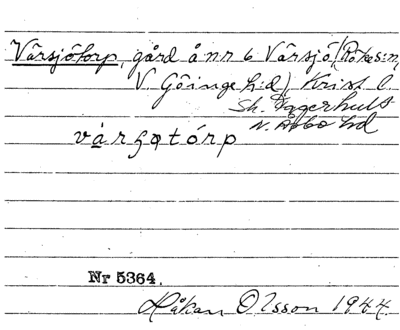 Vårsjötorp, gård å nr 6 Vårsjö (Rökes sn,
V. Göinge h:d), Krist. l.
Sk. Iggerhult
N. Åsbo hd
vá̱rʂɔtórp
Nr 5364.
Håkan Olsson 1944.